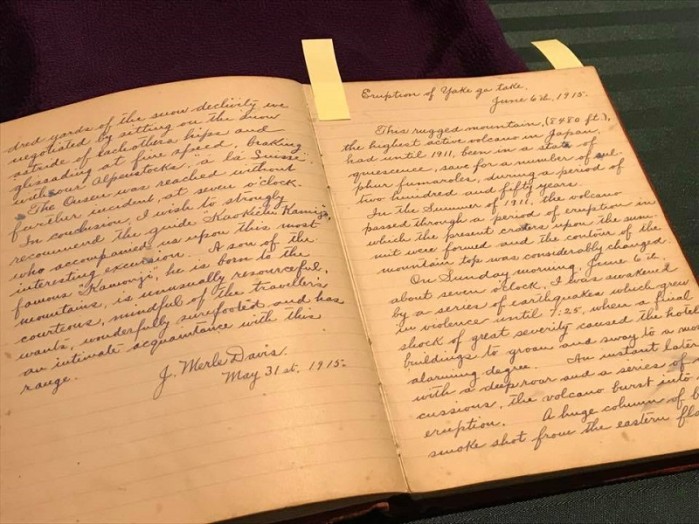 dred yards of the snow declivity we
negotiated by sitting on the snow
astride of each others hips and
glissading at fine speed, braking
with our Alpenstocks, "a la Suisse".
The Onsen was reached without
further incident, at seven o'clock.
In conclusion, I wish to strongly
recommend the guide Kaokichi Kamijo,
who accompanied us upon this most
interesting excursion. A son of the
famous "Kamonji", he is born to the
mountains, is unusually resourceful,
courteous, mindful of the traveller's
wants, wonderfully surefooted, and has
an intimate acquaintance with this
range.
J. Merle Davis.
May 31st, 1915.
Eruption of Yake ga take.
June 6th, 1915.
This rugged mountain, (8480 ft.),
the highest active volcano in Japan,
had until 1911, been in a state of
quiescence, save for a number of sul-
phur fumaroles, during a period of
two hundred and fifty years.
In the Summer of 1911, the volcano
passed through a period of eruption in
which the present craters upon the sum-
mit were formed and the contour of the
mountain top was considerably changed.
On Sunday morning, June 6th,
about seven o'clock, I was awakened
by a series of earthquakes which grew
in violence until 7:25, when a final
shock of great severity caused the hotel
buildings to groan and sway to a
alarming degree. An instant later
with a deep roar and a series of
cussions, the volcano burst into
eruption. A huge column of
smoke shot from the eastern